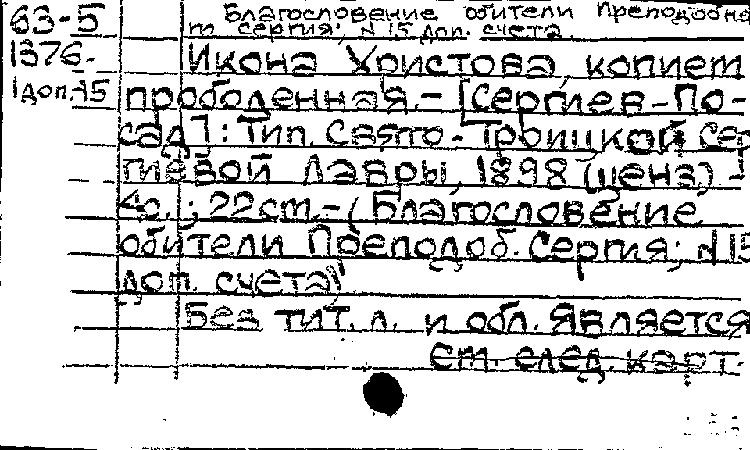 63-5 Благословение обители Преподобна
1376- го Сергия; N 15 доп. счета.
1 доп.-15 Икона Христова, копием
прободенная.- [Сергиев-По-
сад]: Тип. Свято-Троицкой Сер
гиевой Лавры, 1898 (ценз) -
4с.; 22см.- (Благословение
обители Преподоб. Сергия; N 15
доп. счета)
Без тит. л. и обл. Является
См. след. карт.